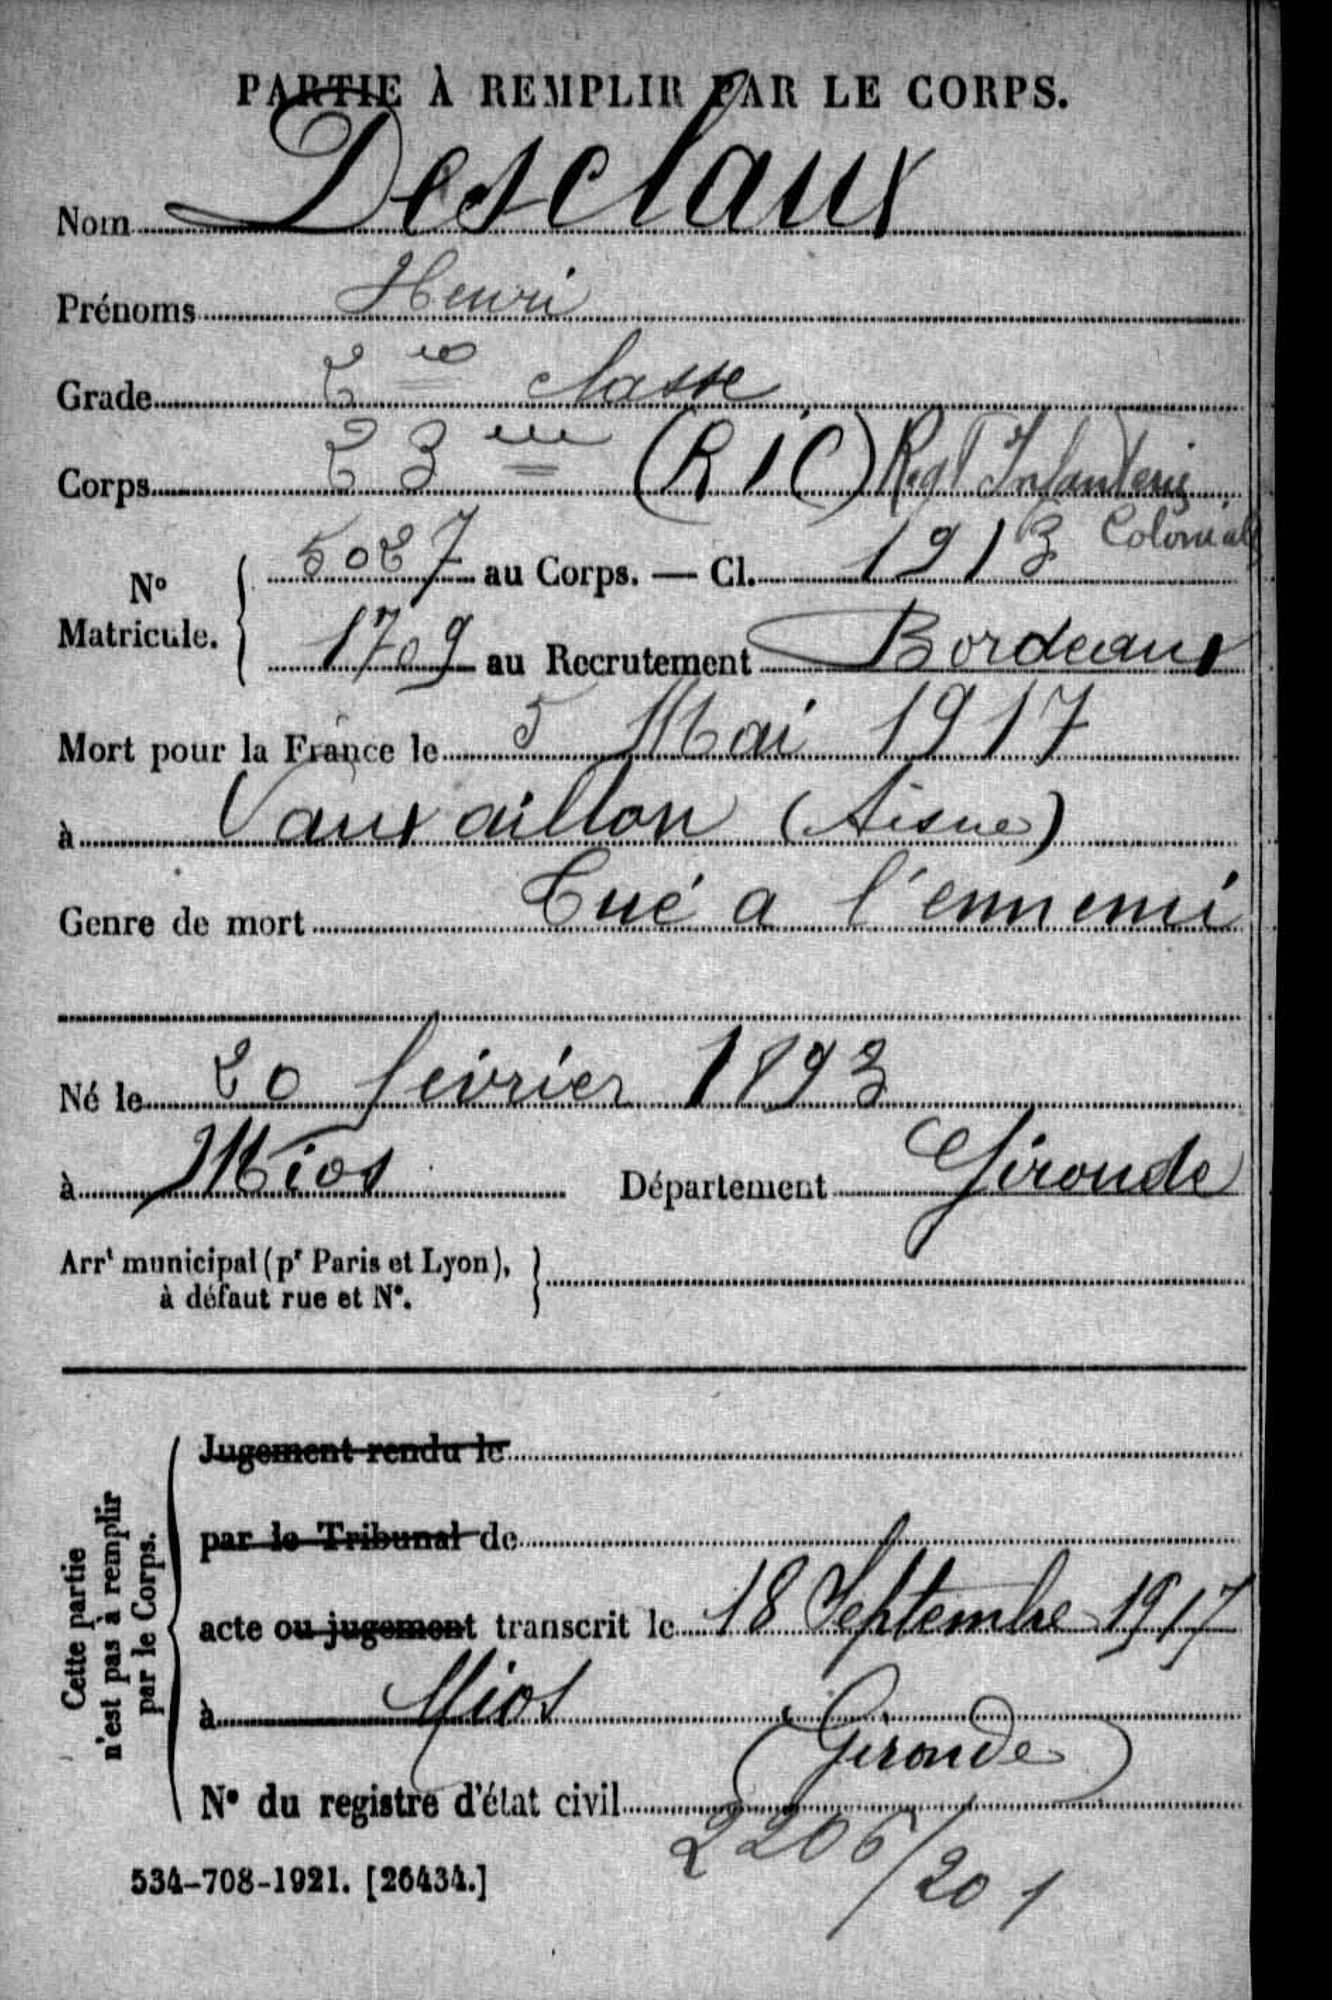 PARTIE À REMPLIR PAR LE CORPS.
Nom Desclaux
Prénoms Henri
Grade 2me classe
Corps 23me (RIC) Regt Infanterie
Colonial
N° Matricule. { 5027 au Corps. — Cl. 1913
1709 au Recrutement Bordeaux
Mort pour la France le 5 Mai 1917
à Vauxaillon (Aisne)
Genre de mort Tué a l'ennemi
Né le 20 février 1893
à Mios Département Gironde
Arrt municipal (pr Paris et Lyon), }
à défaut rue et N°.
Cette partie
n'est pas à remplir
par le Corps.
Jugement rendu le
par le Tribunal de
acte ou jugement transcrit le 18 Septembre 1917
à Mios
(Gironde)
N° du registre d'état civil
2206/201
534-708-1921. [26434.]